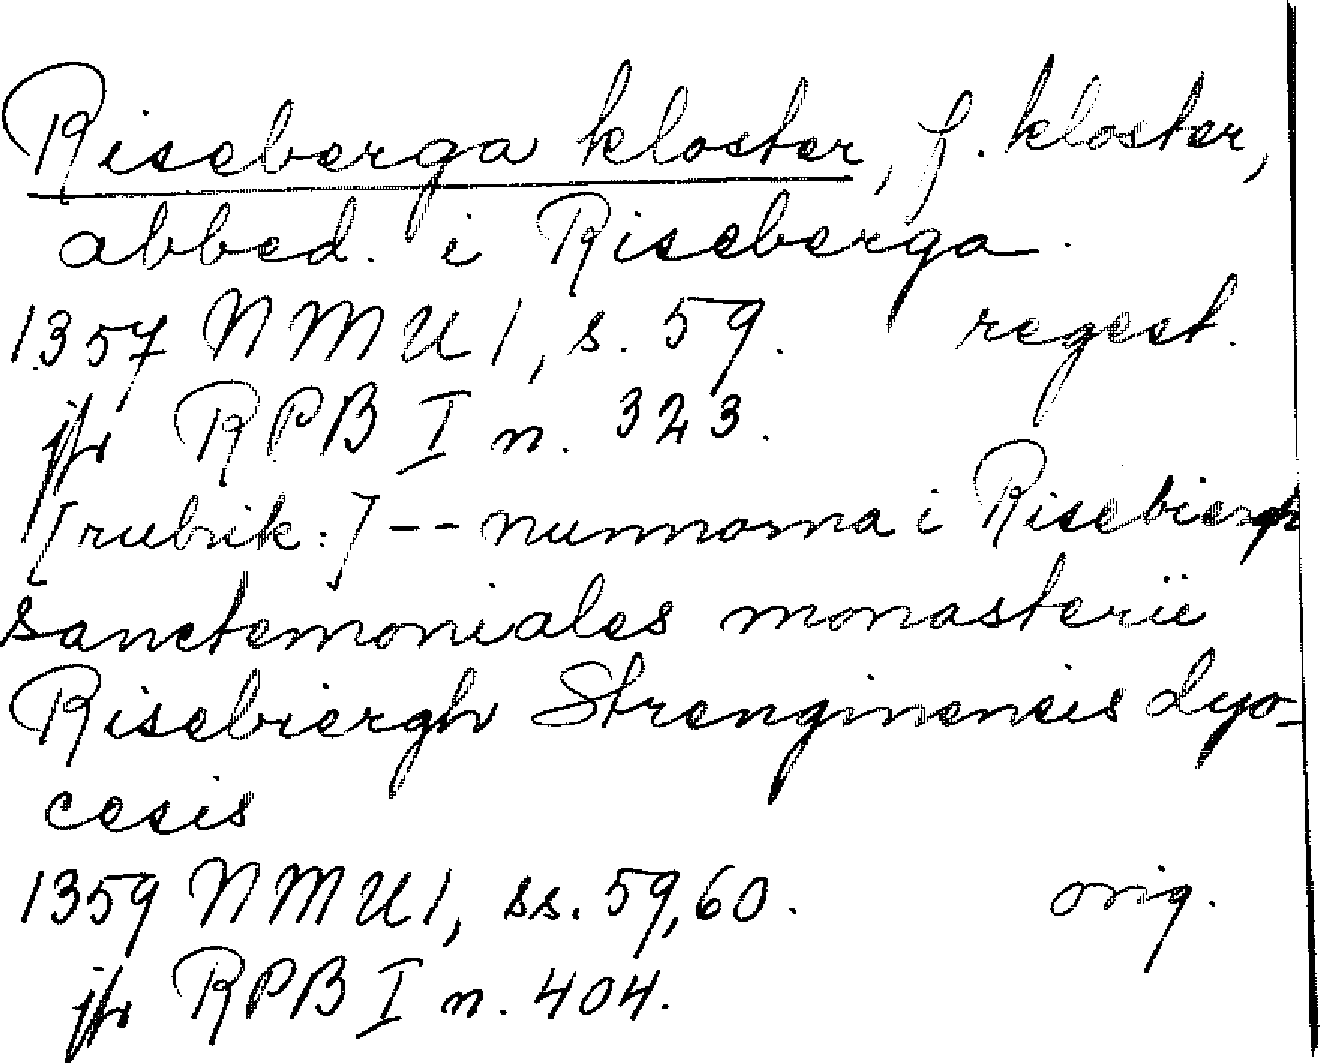 Riseberga kloster, f. kloster,
abbed. i Riseberga.
1357 NMU 1, s. 59. regest.
jfr RPB I n. 323.
[rubrik:] -- nunnorna i Risebiergh
sanctemoniales monasterii
Risebiergh Strenginensis dyo-
cesis
1359 NMU 1, ss. 59, 60. orig.
jfr RPB I n. 404.